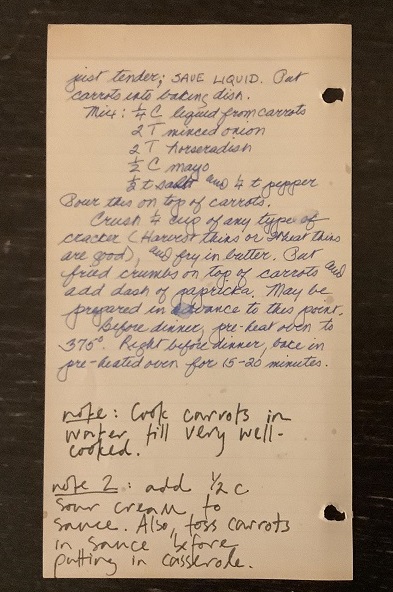 just tender; SAVE LIQUID. Put
carrots into baking dish.
Mix: ¼ C liquid from carrots
2 T minced onion
2 T horseradish
½ C mayo
½ t salt and ¼ t pepper
Pour this on top of carrots.
Crush ¼ cup of any type of
cracker (Harvest thins or Wheat thins
are good), and fry in butter. Put
fried crumbs on top of carrots and
add dash of papricka. May be
prepared in advance to this point.
Before dinner, pre-heat oven to
375°. Right before dinner, bake in
pre-heated oven for 15-20 minutes.
note: Cook carrots in
water till very well-
cooked.
note 2: add ½ c
sour cream to
sauce. Also, toss carrots
in sauce before
putting in casserole.